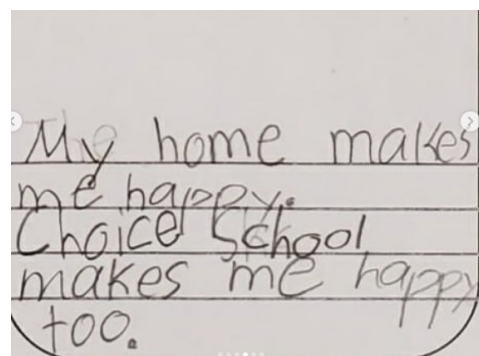 My home makes
me happy.
Choice School
makes me happy
too.